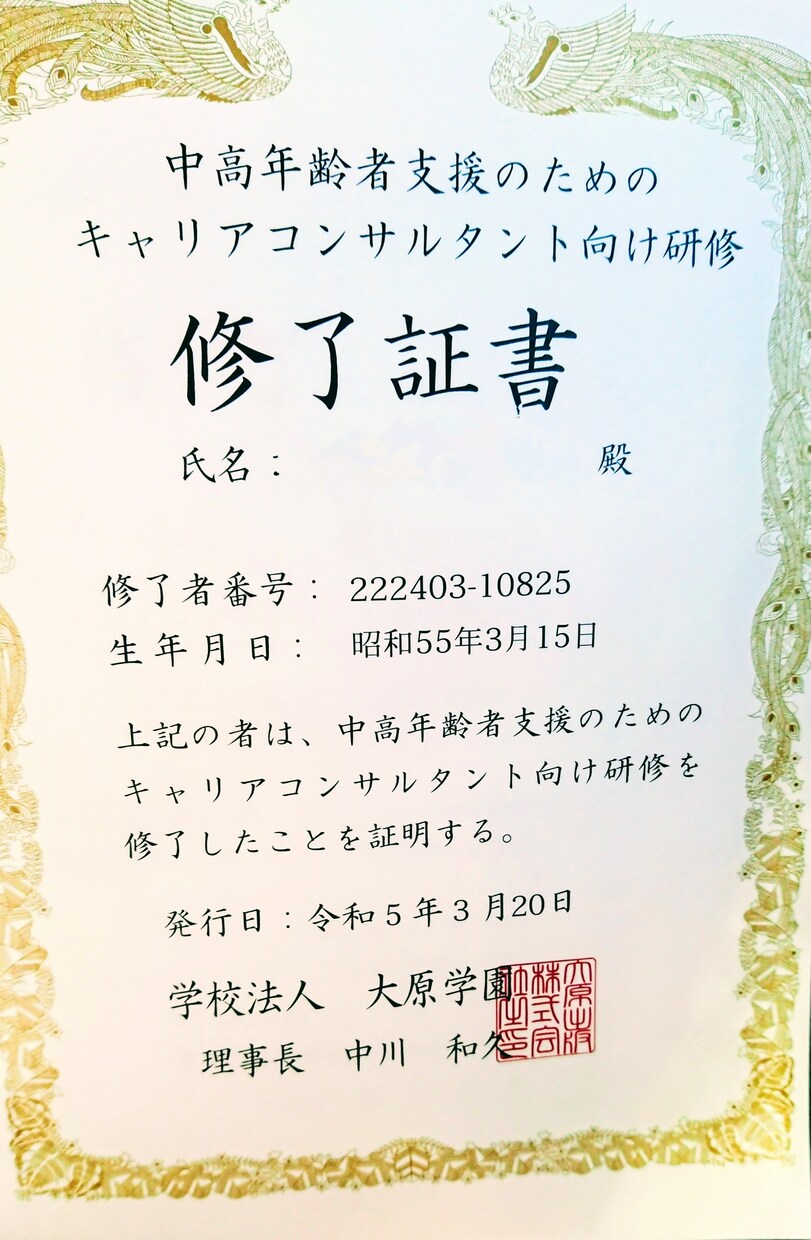 中高年齢者支援のための
キャリアコンサルタント向け研修
修了証書
氏名： 殿
修了者番号： 222403-10825
生年月日： 昭和55年3月15日
上記の者は、中高年齢者支援のための
キャリアコンサルタント向け研修を
修了したことを証明する。
発行日：令和5年3月20日
学校法人 大原学園
理事長 中川 和久
大原出版
株式会
社之印